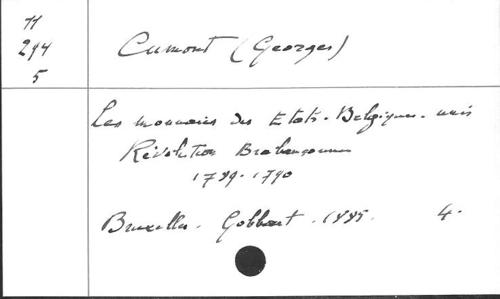 H
294
5
Cumont (Georges)
Les monnaies des Etats-Belgiques-unis
Révolution Brabançonne
1789-1790
Bruxelles. Gobbaerts. 1885. 4.